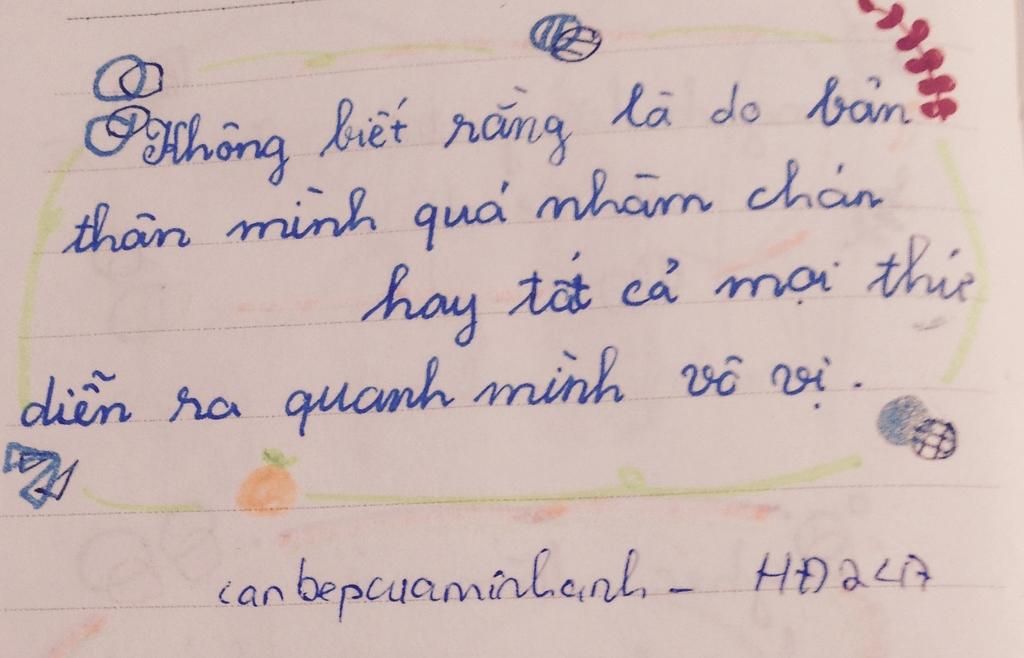 Không biết rằng là do bản
thân mình quá nhàm chán
hay tất cả mọi thứ
diễn ra quanh mình vô vị.
canbepcuaminhanh -